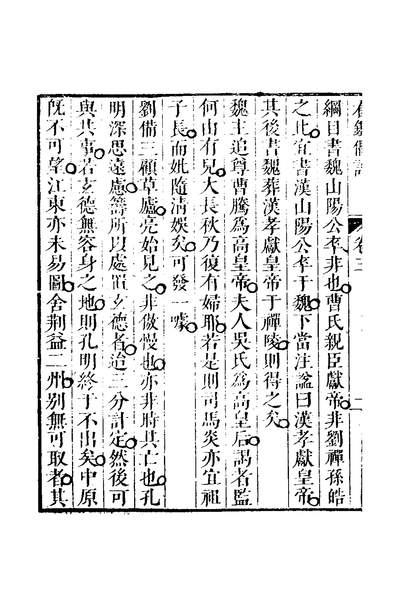 卷三
綱目書魏山陽公卒非也曹氏親臣獻帝非劉禪孫皓
之比宜書漢山陽公卒于魏下當注諡曰漢孝獻皇帝
其後書魏葬漢孝獻皇帝于禪陵則得之矣
魏主追尊曹騰為高皇帝夫人吳氏為高皇后謁者監
何由有兒大長秋乃復有婦耶若是則司馬炎亦宜祖
子長而妣隨清娛矣可發一噱
劉備三顧草廬亮始見之非傲慢也亦非時其亡也孔
明深思遠慮籌所以處置玄德者迨三分計定然後可
與共事若玄德無容身之地則孔明終于不出矣中原
既不可望江東亦未易圖舍荆益二州别無可取者其